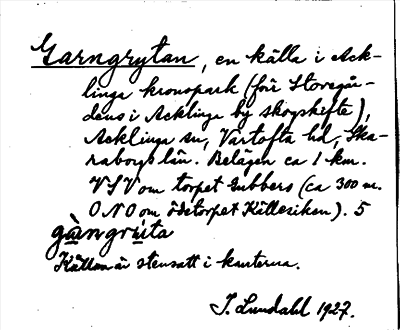 Garngrytan, en källa i Ack-
linga kronopark (för Storegår-
dens i Acklinga by skogskifte),
Acklinga sn, Vartofta hd, Ska-
raborgs län. Belägen ca 1 km.
VSV om torpet Gubbers (ca 300 m.
ONO om ödetorpet Källesiken). 5
gàngrùita
Källan är stensatt i kanterna.
J. Lundahl 1927.